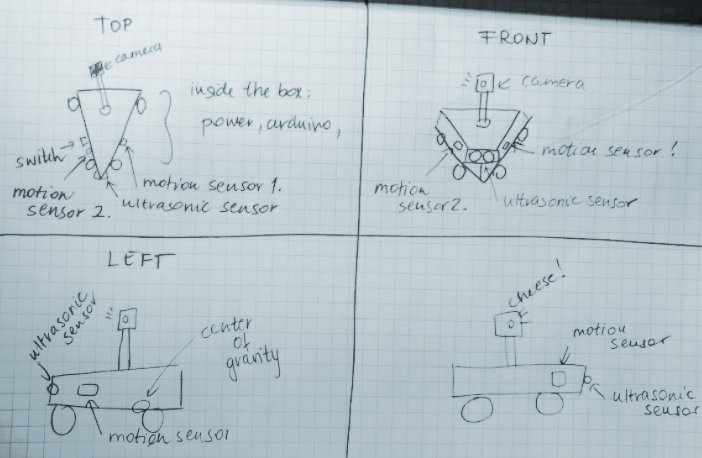 TOP
camera
inside the box:
power, arduino,
switch
motion
sensor 2.
motion sensor 1.
ultrasonic sensor
FRONT
camera
motion sensor!
motion
sensor 2.
ultrasonic sensor
LEFT
ultrasonic
sensor
center
of
gravity
motion sensor
cheese!
motion
sensor
ultrasonic
sensor